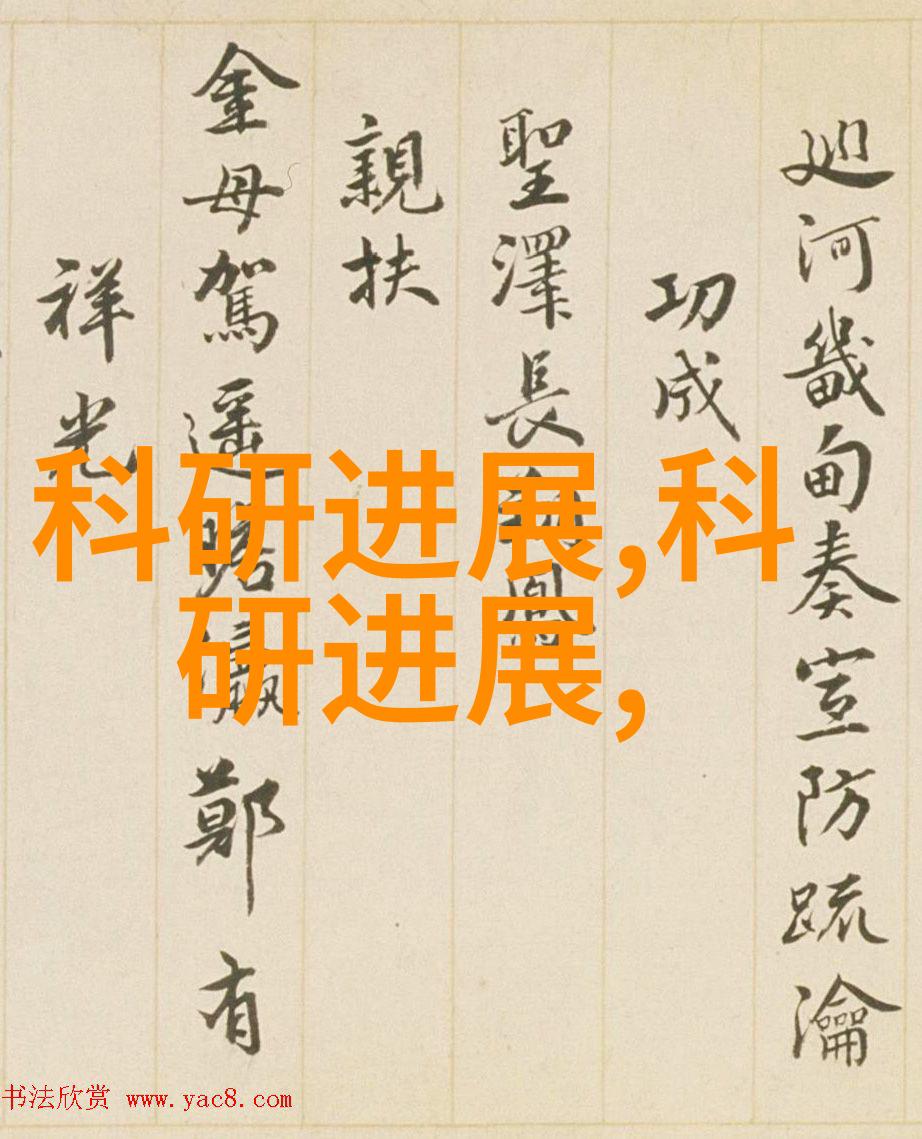 廵河畿甸奏宣防疏瀹
功成
聖澤長
親扶
金母駕遥鄭有
祥光
科研进展,科
研进展,
书法欣赏 www.yac8.com